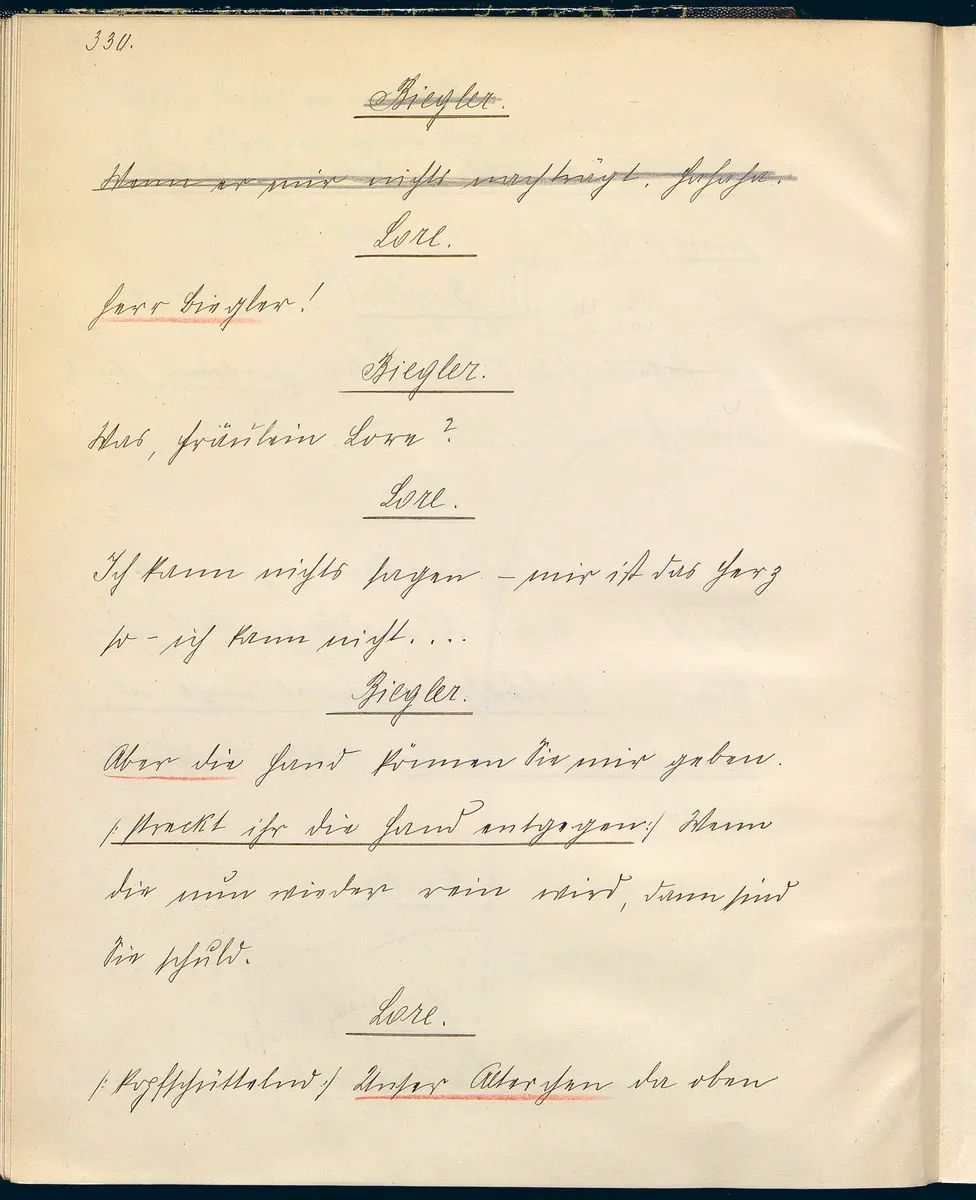 330.
Biegler.
Wenn er mir nichts nachträgt. Hahaha.
Lore.
Herr Biegler!
Biegler.
Was, Fräulein Lore?
Lore.
Ich kann nichts sagen – mir ist das Herz
so – ich kann nicht....
Biegler.
Aber die Hand können Sie mir geben.
/: streckt ihr die Hand entgegen :/ Wenn
die nun wieder rein wird, dann sind
Sie schuld.
Lore.
/: kopfschüttelnd :/ Unser Alterchen da oben